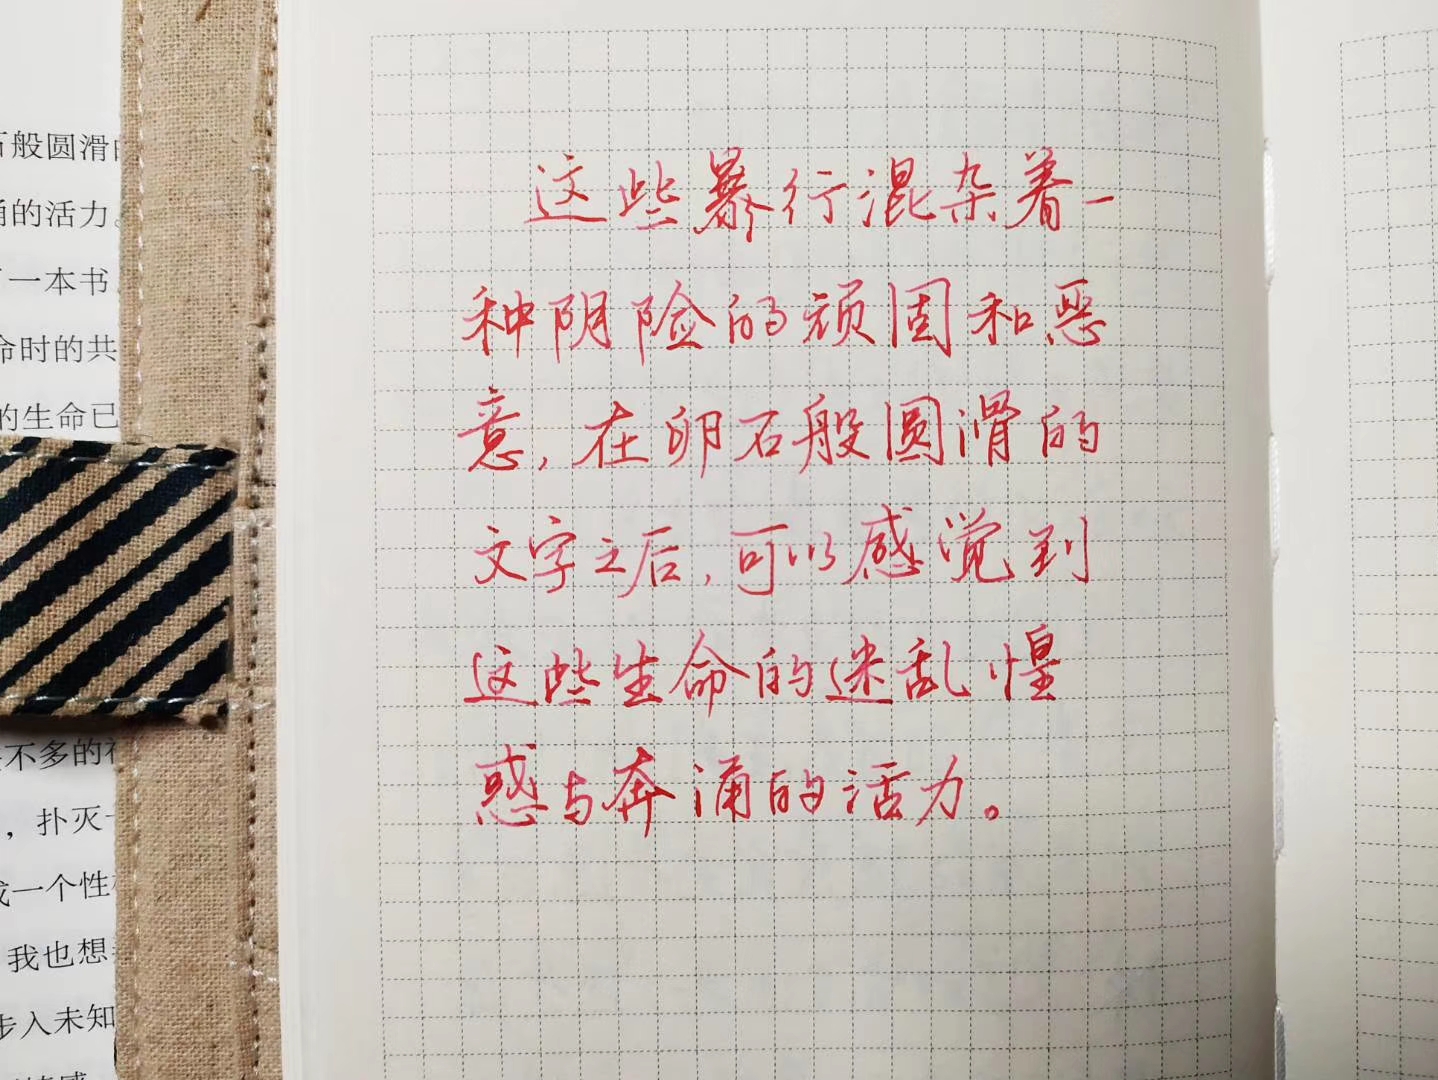 石般圆滑
涌的活力。
一本书
命时的共
的生命已
不多的
，扑灭
一个性
我也想
步入未知
这些暴行混杂着一
种阴险的顽固和恶
意，在卵石般圆滑的
文字之后，可以感觉到
这些生命的迷乱惶
惑与奔涌的活力。